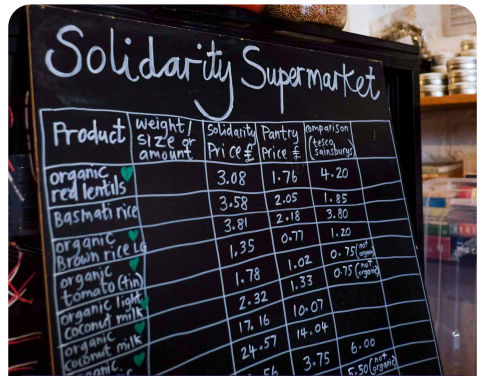 Solidarity Supermarket
Product weight/ size or amount Solidarity Price £ Pantry Price £ comparison (tesco, sainsburys
organic red lentils 3.08 1.76 4.20
Basmati rice 3.58 2.05 1.85
organic Brown rice LG 3.81 2.18 3.80
organic tomato (tin) 1.35 0.77 1.20
organic light coconut milk 1.78 1.02 0.75 (not organic)
organic coconut milk 2.32 1.33 0.75 (not organic)
organic 17.16 10.07
24.57 14.04
.56 3.75 6.00
5.50 (not